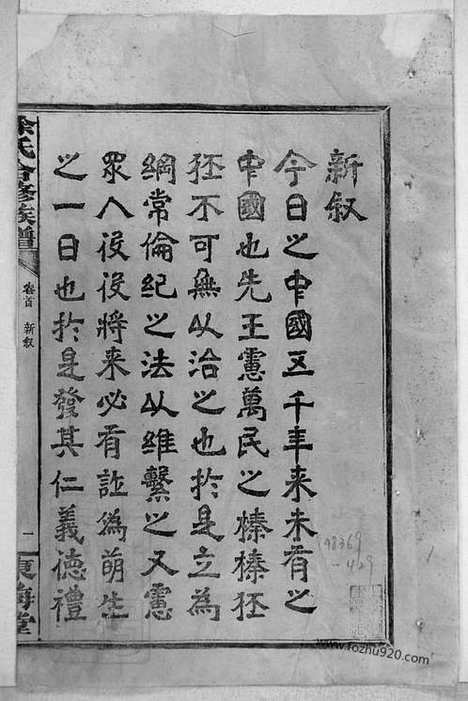 新叙
今日之中國五千年来未有之
中國也先王憲萬民之榛榛狉
狉不可無以治之也於是立為
綱常倫紀之法以維繫之又憲
眾人役役將来必有訛為萌生
之一日也於是發其仁義德禮
徐氏會修族譜
卷首 新叙
一
東海堂
www.fozhu920.com